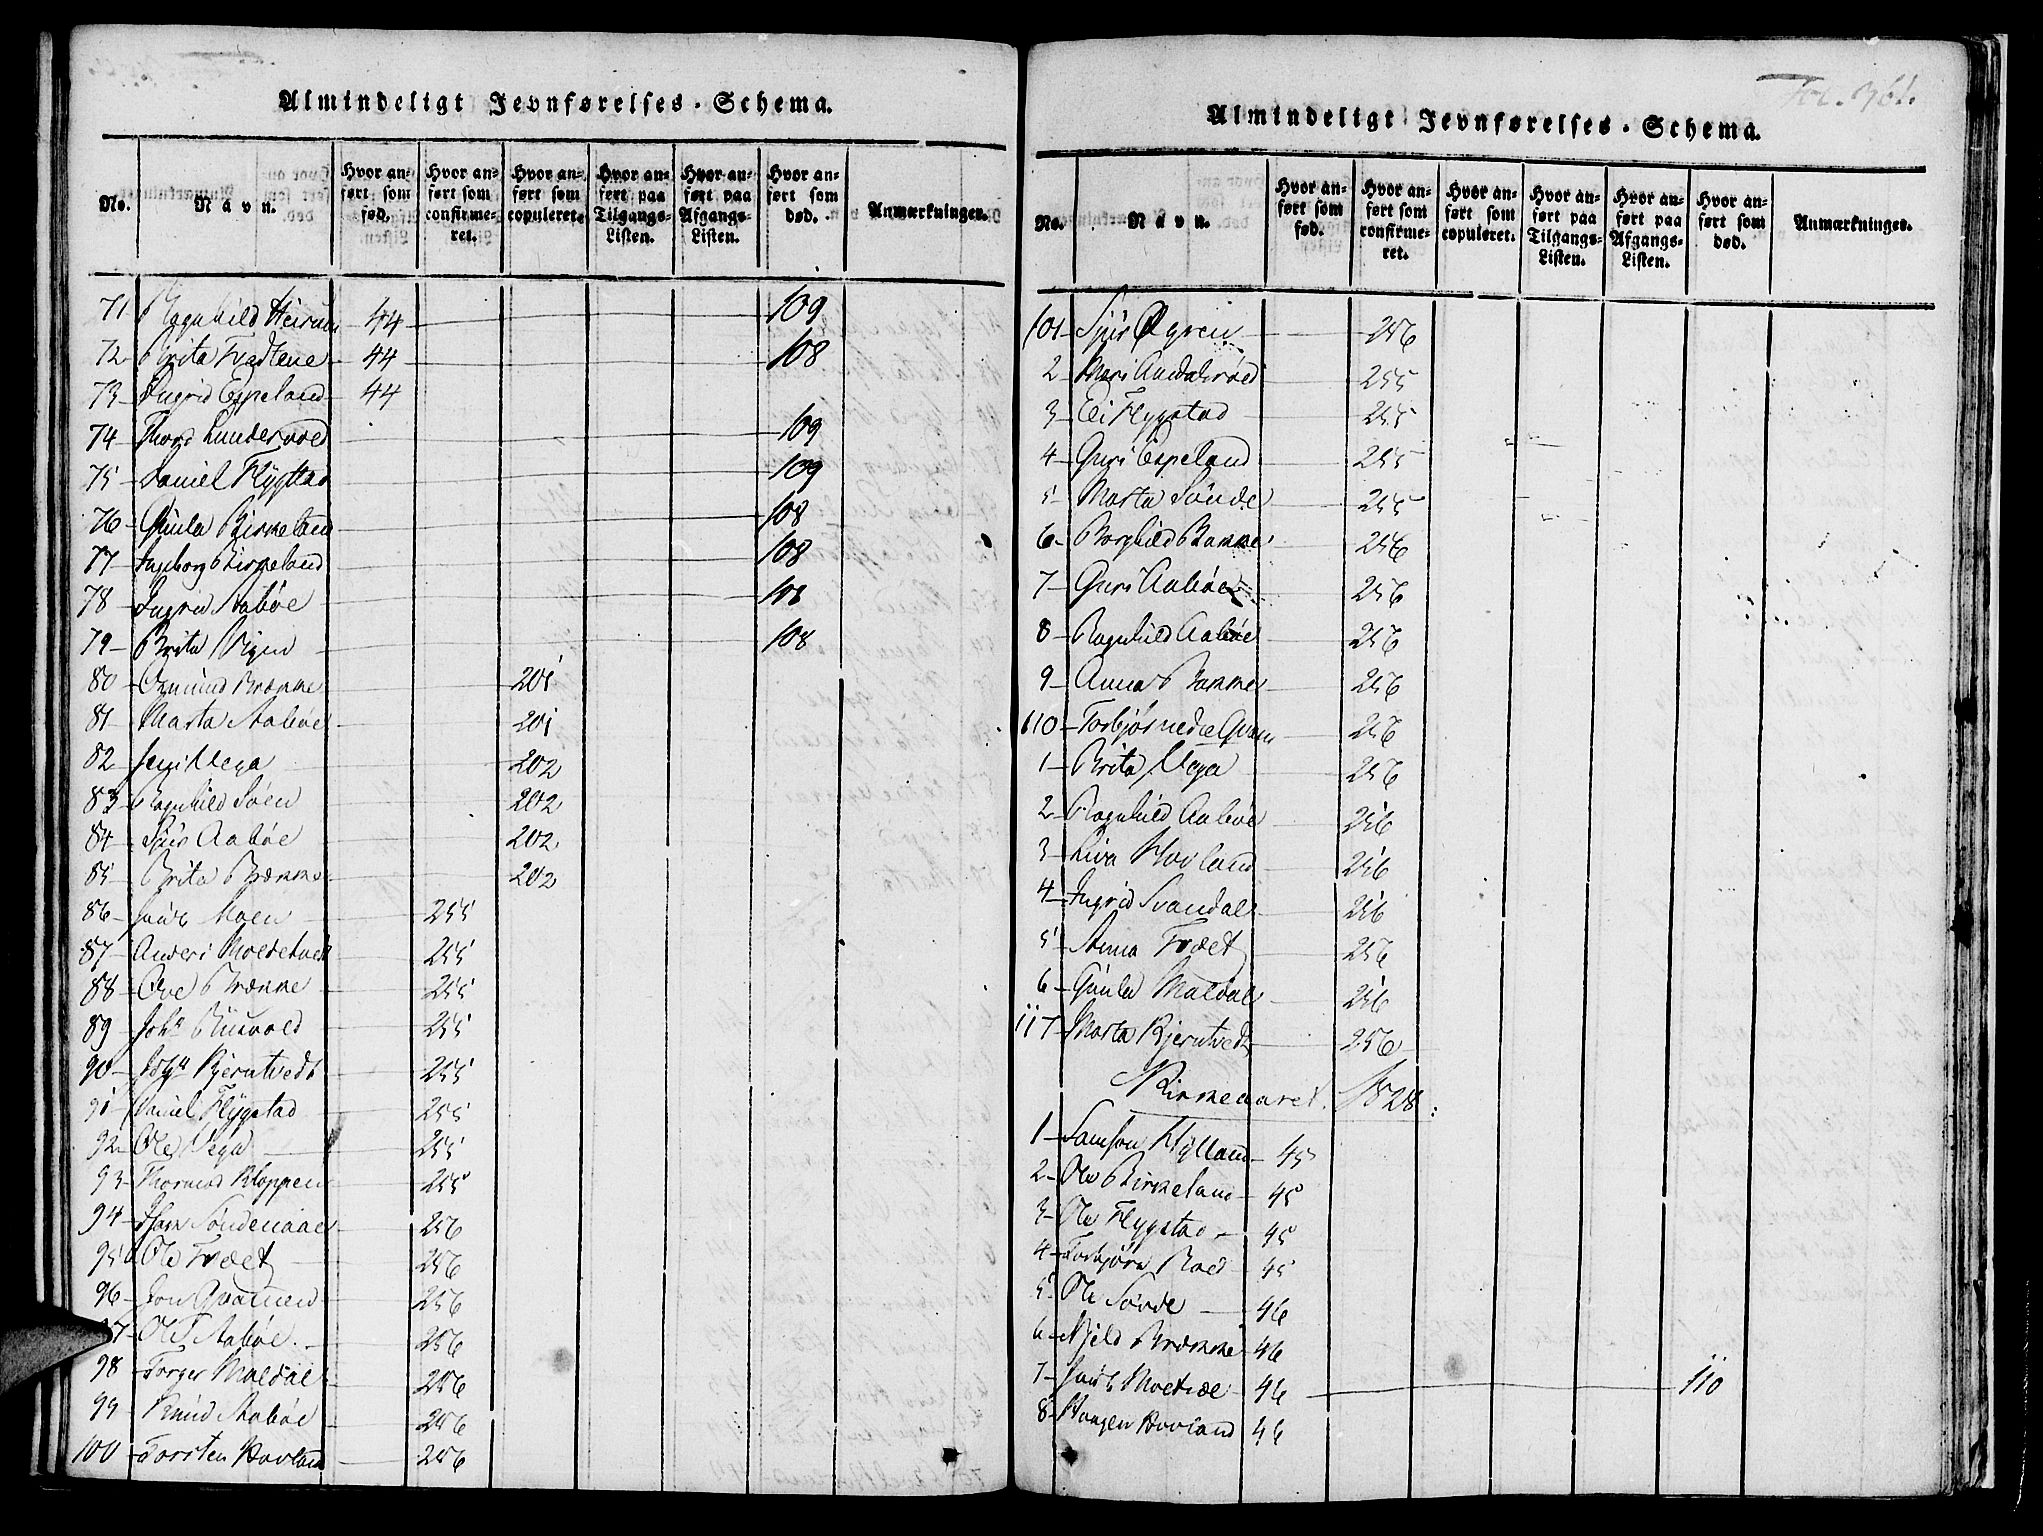 Almindeligt Jevnførelses-Schema.
No. Navn. Hvor anført som fød. Hvor anført som confirmeret. Hvor anført som copuleret. Hvor anført paa Tilgangs-Listen. Hvor anført paa Afgangs-Listen. Hvor anført som død. Anmærkninger.
71 Ragnhild 44 109
72 Brita 44 108
73 Ingrid Espeland 44
74 109
75 Daniel Flÿgstad 109
76 Birkeland 108
77 Ingeborg Birkeland 108
78 Ingrid Aabøe 108
79 Brita Vigen 108
80 Osmund Brække 201
81 Marta Aabøe 201
82 Vega 202
83 Ragnhild Søen 202
84 Siur Aabøe 202
85 Brita Brække 202
86 Moen 255
87 Anders 255
88 Ove Brække 255
89 Joh: 255
90 Kjerutvedt 255
91 Daniel Flÿgstad 255
92 Ole Vega 255
93 Thormod Kloppen 255
94 Søndenaae 256
95 Ole Trædet 256
96 Jon Qvamen 256
97 Ole Aabøe 256
98 Torger Maldal 256
99 Knud Aabøe 256
100 Torsten Hovland 256
Fol. 361.
Almindeligt Jevnførelses-Schema.
No. Navn. Hvor anført som fød. Hvor anført som confirmeret. Hvor anført som copuleret. Hvor anført paa Tilgangs-Listen. Hvor anført paa Afgangs-Listen. Hvor anført som død. Anmærkninger.
101 Siur Øgren 256
2 Mari 255
3 Eli Flygstad 255
4 Guri Espeland 255
5 Marta Sønde 255
6 Borghild Brække 256
7 Guri Aabøe 256
8 Ragnhild Aabøe 256
9 Anna Brække 256
110 256
1 Brita Vega 256
2 Ragnhild Aabøe 256
3 Liva Hovland 256
4 Ingrid Svandal 256
5 Anna Trædet 256
6 Maldal 256
117 Marta Kjerutvedt 256
Kirkeaaret 1828:
1 Samson Hÿlland 45
2 Ole Birkeland 45
3 Ole Flygstad 45
4 Torbjørn Roed 45
5 Ole Sønde 46
6 Kield Brække 46
7 46 110
8 Haagen Hovland 46